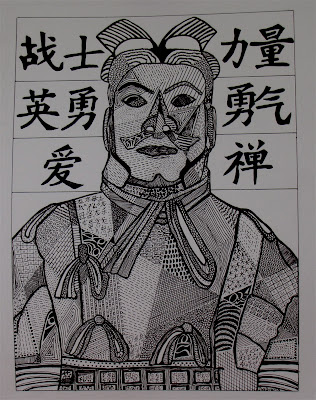 战士 力量
英勇 勇气
爱 禅